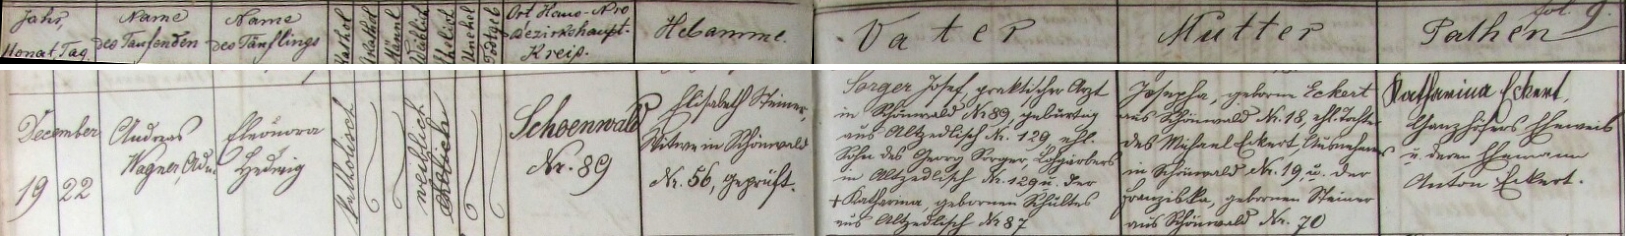 fol. 9.
Jahr, Monat, Tag.
Name des Taufenden
Name des Täuflings
Kathol
Akathol
Männl
Weiblich
Ehelich
Unehel
Todtgeb
Ort Haus-Nro
Bezirkshaupt-
Kreis.
Hebamme.
Vater
Mutter
Pathen
December
19 22
Andreas
Wagner, Adm.
Eleonora
Hedwig
Katholisch
weiblich
ehelich
Schoenwald
Nr. 89
Elisabeth Steiner,
Witwe in Schönwald
Nr. 56, geprüft.
Sorger Josef, praktischer Arzt
in Schönwald Nr 89, gebürtig
aus Altzedlisch Nr. 129, ehl.
Sohn des Georg Sorger, Lohgärbers
in Altzedlisch Nr. 129 u. der
+ Katharina, gebornen Schultes
aus Altzedlisch Nr 87
Josepha, geborne Eckert
aus Schönwald Nr. 18, ehl. Tochter
des Michael Eckert, Ausnehmers
in Schönwald Nr. 19, u. der
Franziska, gebornen Steiner
aus Schönwald Nr. 70
Katharina Eckert,
Eheweib
u. deren Ehemann
Anton Eckert.